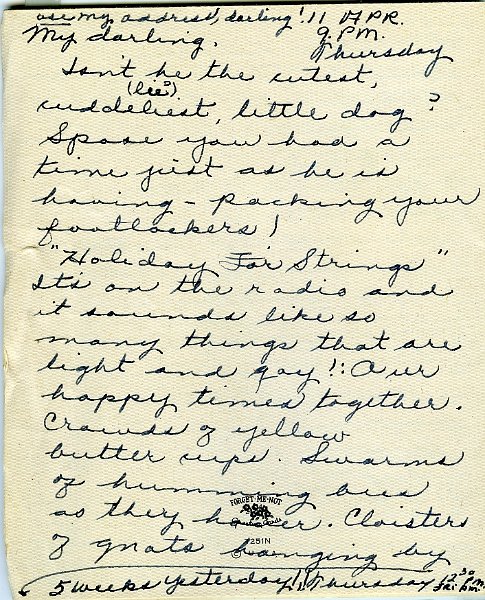 use my address, darling! 11 APR.
My darling, 9. P.M.
Thursday
Isn't he the cutest,
(lie?)
cuddeliest, little dog?
Spose you had a
time just as he is
having - packing your
footlockers!
"Holiday For Strings"
It's on the radio and
it sounds like so
many things that are
light and gay!: Our
happy times together.
Crowds of yellow
butter cups. Swarms
of humming bees
as they hover. Cloisters
of gnats hanging by
FORGET-ME-NOT
251N
5 weeks yesterday!! Thursday 12:30 P.M.